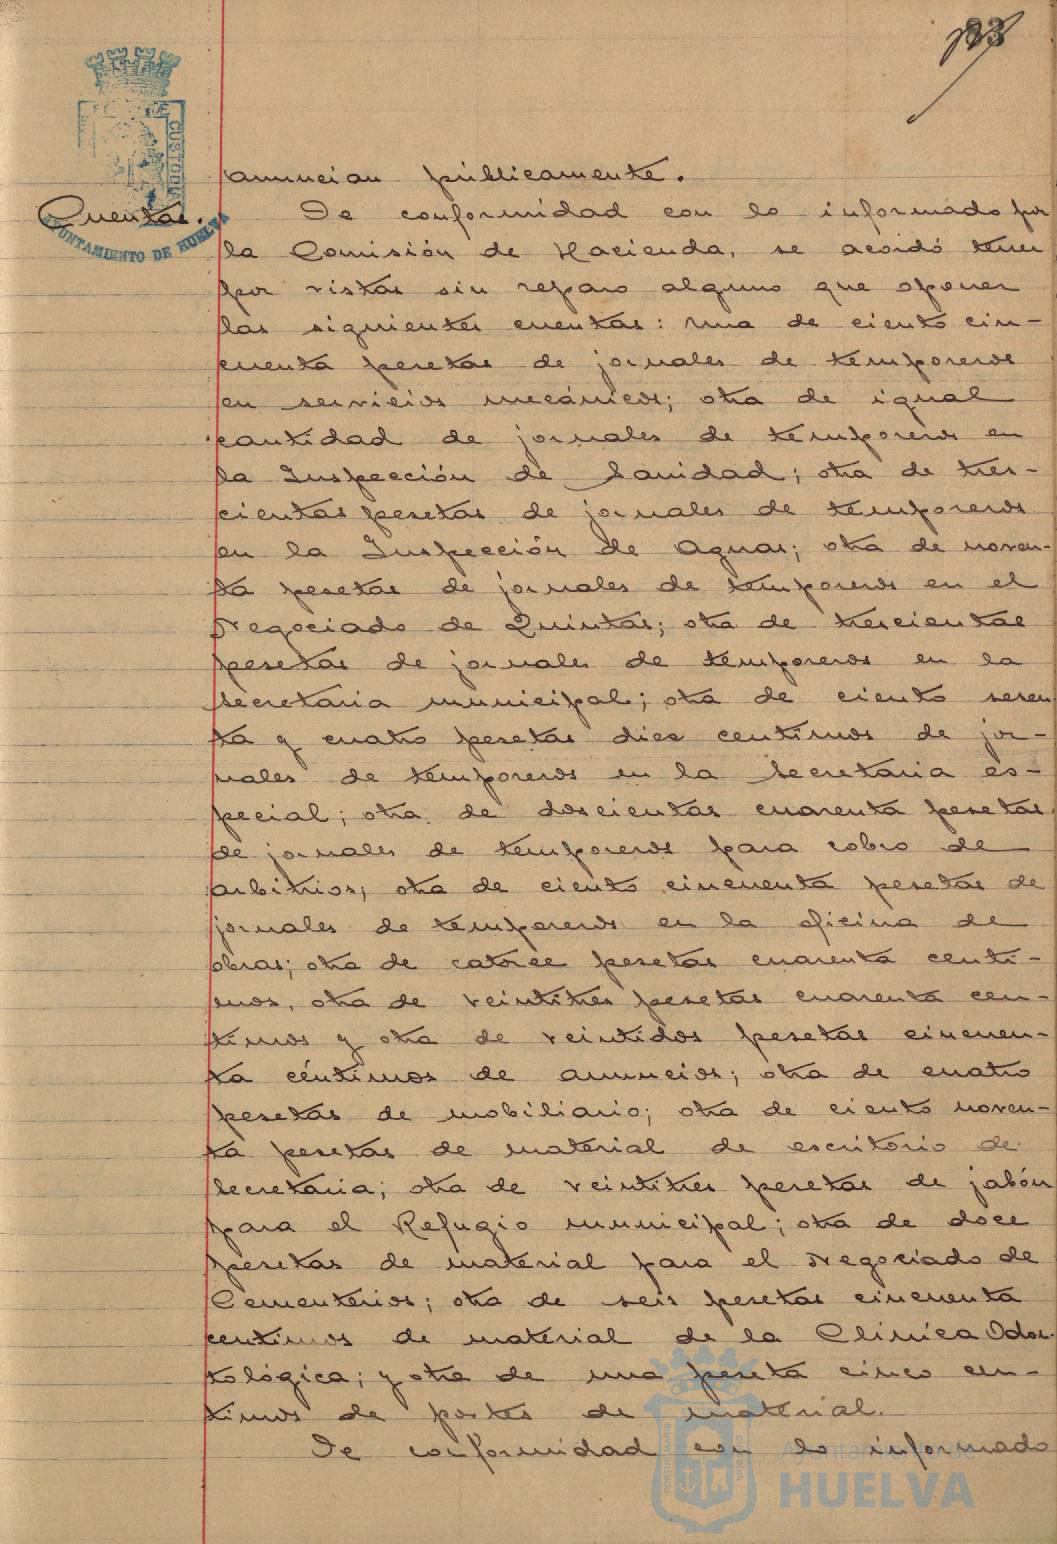 133
anuncian públicamente.
Cuentas.
CUSTODIA
AYUNTAMIENTO DE HUELVA
De conformidad con lo informado por
la Comisión de Hacienda, se acordó tener
por vistas sin reparo alguno que oponer
las siguientes cuentas: una de ciento cin-
cuenta pesetas de jornales de temporeros
en servicios mecánicos; otra de igual
cantidad de jornales de temporeros en
la Inspección de Sanidad; otra de tres-
cientas pesetas de jornales de temporeros
en la Inspección de Aguas; otra de noven-
ta pesetas de jornales de temporeros en el
Negociado de Quintas; otra de trescientas
pesetas de jornales de temporeros en la
Secretaria municipal; otra de ciento seten
ta y cuatro pesetas diez centimos de jor-
nales de temporeros en la Secretaria es-
pecial; otra de doscientas cuarenta pesetas
de jornales de temporeros para cobro de
arbitrios; otra de ciento cincuenta pesetas de
jornales de temporeros en la oficina de
obras; otra de catorce pesetas cuarenta centi-
mos, otra de veintitres pesetas cuarenta cen-
timos y otra de veintidos pesetas cincuen-
ta céntimos de anuncios; otra de cuatro
pesetas de mobiliario; otra de ciento noven-
ta pesetas de material de escritorio de
Secretaria; otra de veintitres pesetas de jabón
para el Refugio municipal; otra de doce
pesetas de material para el Negociado de
Cementerios; otra de seis pesetas cincuenta
centimos de material de la Clínica Odon-
tológica; y otra de una peseta cinco cen-
timos de portes de material.
De conformidad con lo informado
Ayuntamiento de
HUELVA